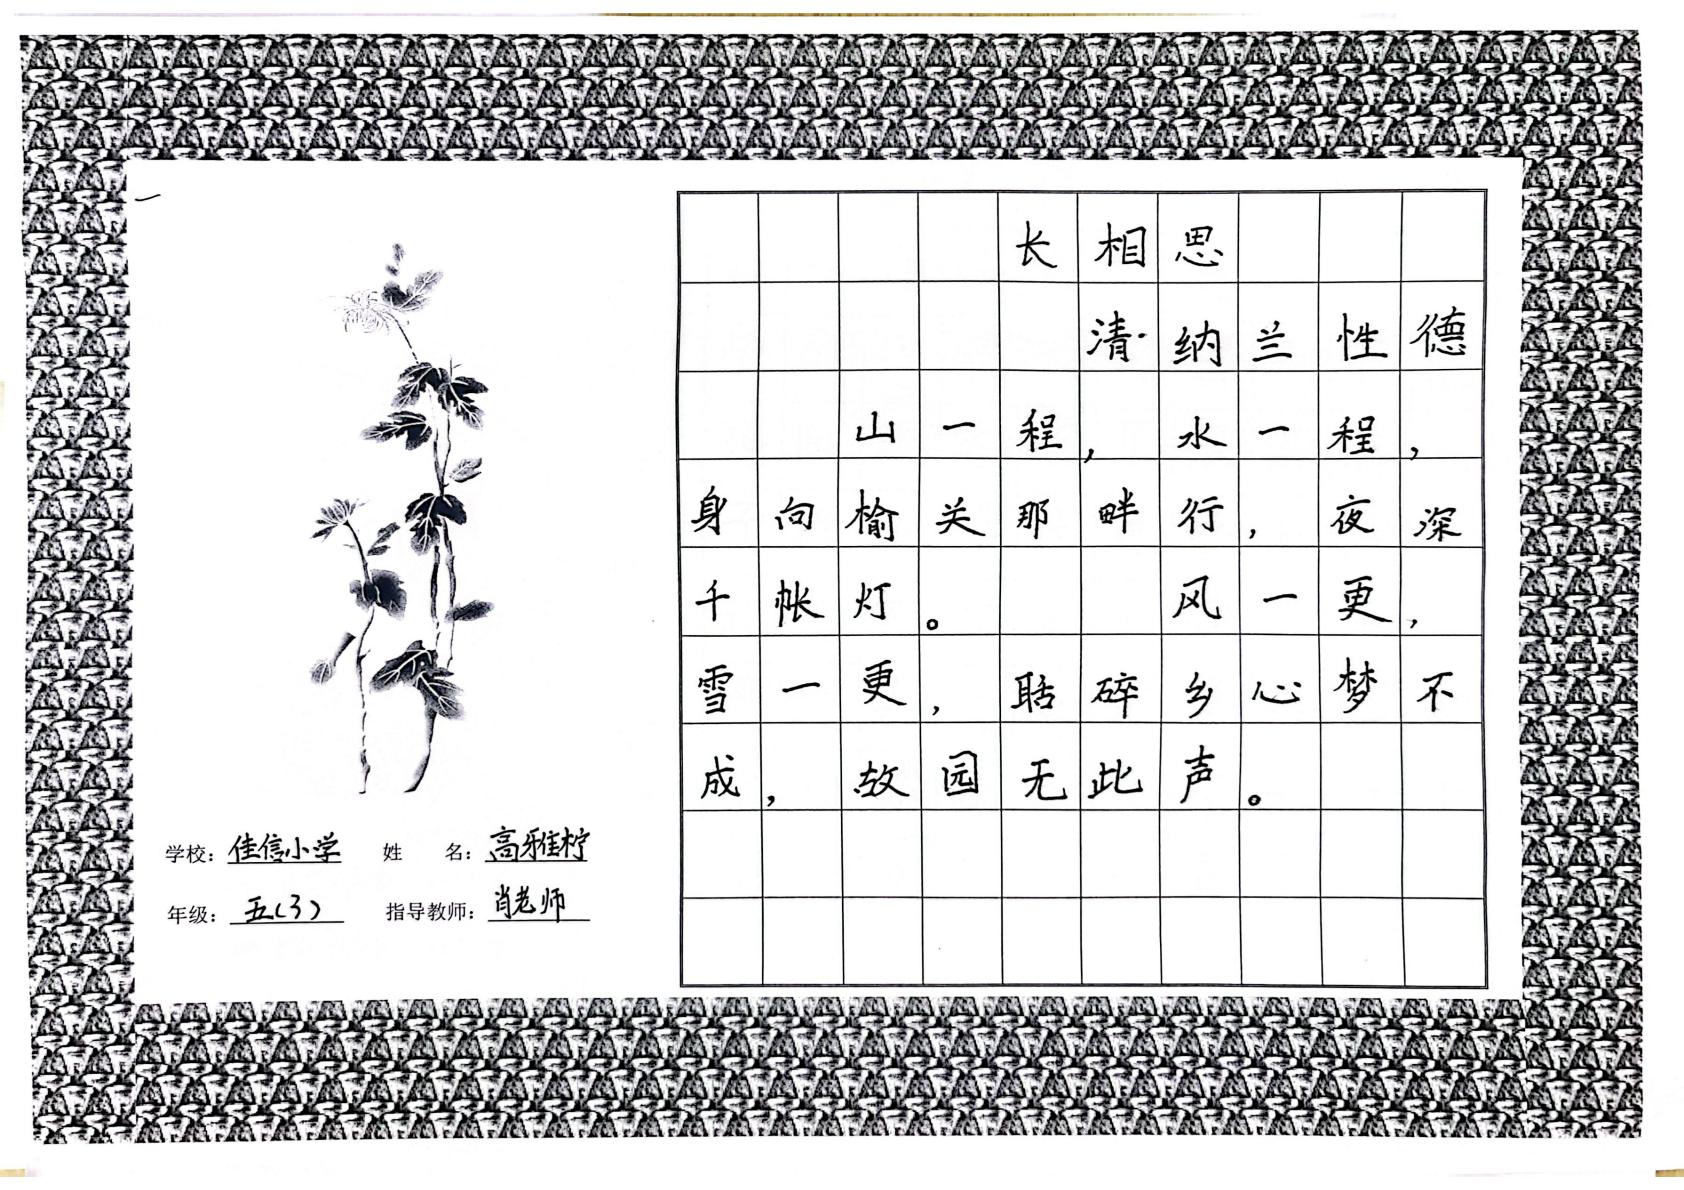 长相思
清·纳兰性德
山一程，水一程，
身向榆关那畔行，夜深
千帐灯。 风一更，
雪一更，聒碎乡心梦不
成，故园无此声。
学校：佳信小学 姓名：高雅柠
年级：五(3) 指导教师：肖老师